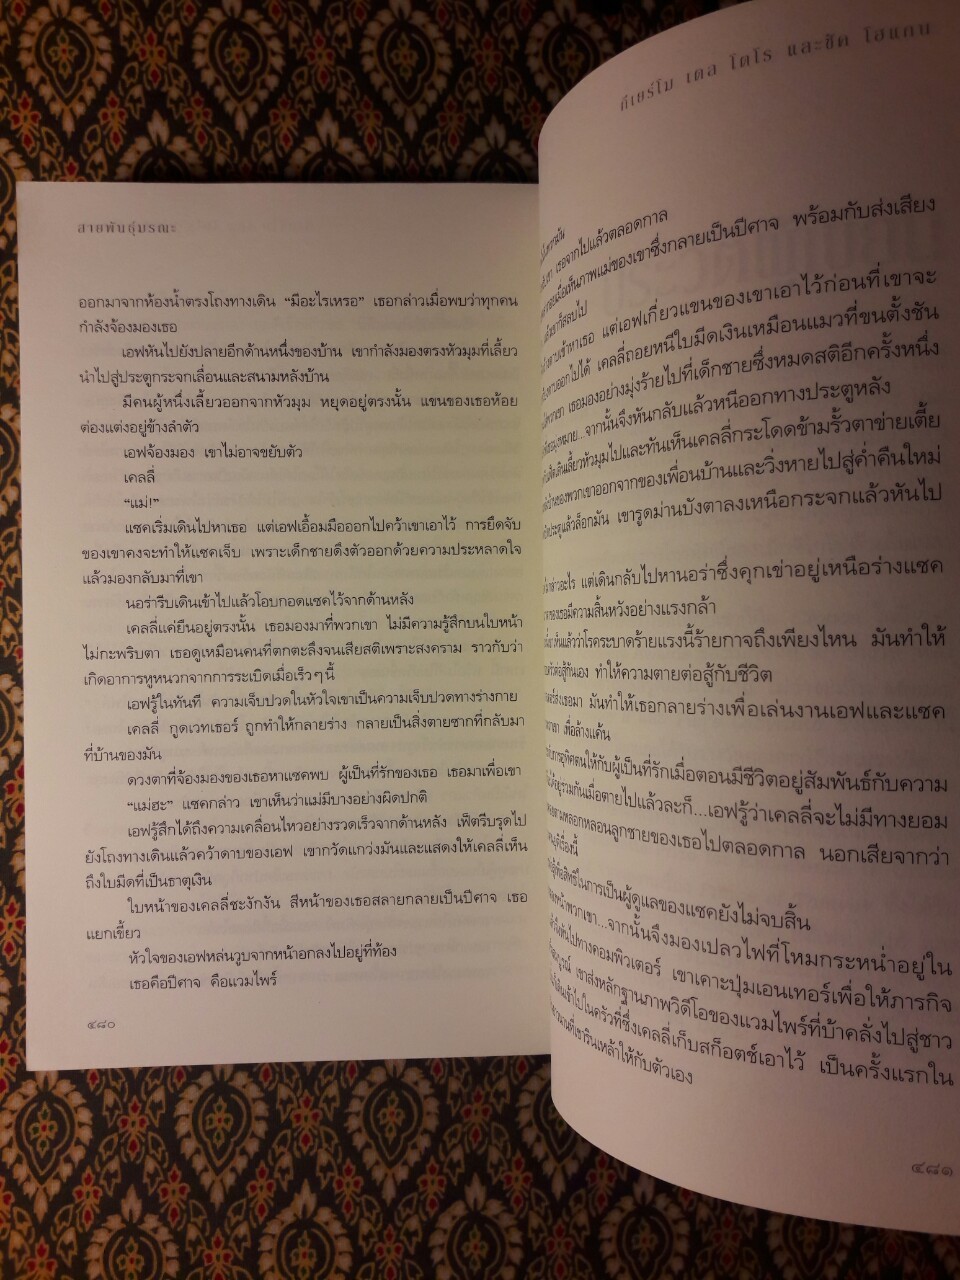 สายพันธุ์มรณะ
ออกมาจากห้องน้ำตรงโถงทางเดิน “มีอะไรเหรอ” เธอกล่าวเมื่อพบว่าทุกคน
กำลังจ้องมองเธอ
เอฟหันไปยังปลายอีกด้านหนึ่งของบ้าน เขากำลังมองตรงหัวมุมที่เลี้ยว
นำไปสู่ประตูกระจกเลื่อนและสนามหลังบ้าน
มีคนผู้หนึ่งเลี้ยวออกจากหัวมุม หยุดอยู่ตรงนั้น แขนของเธอห้อย
ต่องแต่งอยู่ข้างลำตัว
เอฟจ้องมอง เขาไม่อาจขยับตัว
เคลลี่
“แม่!”
แซคเริ่มเดินไปหาเธอ แต่เอฟเอื้อมมือออกไปคว้าเขาเอาไว้ การยึดจับ
ของเขาคงจะทำให้แซคเจ็บ เพราะเด็กชายดึงตัวออกด้วยความประหลาดใจ
แล้วมองกลับมาที่เขา
นอร่ารีบเดินเข้าไปแล้วโอบกอดแซคไว้จากด้านหลัง
เคลลี่แค่ยืนอยู่ตรงนั้น เธอมองมาที่พวกเขา ไม่มีความรู้สึกบนใบหน้า
ไม่กะพริบตา เธอดูเหมือนคนที่ตกตะลึงจนเสียสติเพราะสงคราม ราวกับว่า
เกิดอาการหูหนวกจากการระเบิดเมื่อเร็วๆนี้
เอฟรู้ในทันที ความเจ็บปวดในหัวใจเขาเป็นความเจ็บปวดทางร่างกาย
เคลลี่ กูดเวทเธอร์ ถูกทำให้กลายร่าง กลายเป็นสิ่งตายซากที่กลับมา
ที่บ้านของมัน
ดวงตาที่จ้องมองของเธอหาแซคพบ ผู้เป็นที่รักของเธอ เธอมาเพื่อเขา
“แม่ฮะ” แซคกล่าว เขาเห็นว่าแม่มีบางอย่างผิดปกติ
เอฟรู้สึกได้ถึงความเคลื่อนไหวอย่างรวดเร็วจากด้านหลัง เฟ็ตรีบรุดไป
ยังโถงทางเดินแล้วคว้าดาบของเอฟ เขากวัดแกว่งมันและแสดงให้เคลลี่เห็น
ถึงใบมีดที่เป็นธาตุเงิน
ใบหน้าของเคลลี่ชะงักงัน สีหน้าของเธอสลายกลายเป็นปีศาจ เธอ
แยกเขี้ยว
หัวใจของเอฟหล่นวูบจากหน้าอกลงไปอยู่ที่ท้อง
เธอคือปีศาจ คือแวมไพร์
๔๘๐
กีเยร์โม เดล โตโร และชัค โฮแกน
เธอจากไปแล้วตลอดกาล
เมื่อเห็นภาพแม่ของเขาซึ่งกลายเป็นปีศาจ พร้อมกับส่งเสียง
แต่เอฟเกี่ยวแขนของเขาเอาไว้ก่อนที่เขาจะ
เคลลี่ถอยหนีใบมีดเงินเหมือนแมวที่ขนตั้งชัน
เธอมองอย่างมุ่งร้ายไปที่เด็กชายซึ่งหมดสติอีกครั้งหนึ่ง
จากนั้นจึงหันกลับแล้วหนีออกทางประตูหลัง
เลี้ยวหัวมุมไปและทันเห็นเคลลี่กระโดดข้ามรั้วตาข่ายเตี้ย
ของพวกเขาออกจากของเพื่อนบ้านและวิ่งหายไปสู่ค่ำคืนใหม่
ประตูแล้วล็อกมัน เขารูดม่านบังตาลงเหนือกระจกแล้วหันไป
แต่เดินกลับไปหานอร่าซึ่งคุกเข่าอยู่เหนือร่างแซค
ของเธอมีความสิ้นหวังอย่างแรงกล้า
เห็นแล้วว่าโรคระบาดร้ายแรงนี้ร้ายกาจถึงเพียงไหน มันทำให้
ต่อสู้กันเอง ทำให้ความตายต่อสู้กับชีวิต
มันทำให้เธอกลายร่างเพื่อเล่นงานเอฟและแซค
เพื่อล้างแค้น
ให้กับผู้เป็นที่รักเมื่อตอนมีชีวิตอยู่สัมพันธ์กับความ
อยู่ร่วมกันเมื่อตายไปแล้วละก็...เอฟรู้ว่าเคลลี่จะไม่มีทางยอม
หลอกหลอนลูกชายของเธอไปตลอดกาล นอกเสียจากว่า
เรื่องนี้
สิทธิ์ในการเป็นผู้ดูแลของแซคยังไม่จบสิ้น
พวกเขา...จากนั้นจึงมองเปลวไฟที่โหมกระหน่ำอยู่ใน
ไปทางคอมพิวเตอร์ เขาเคาะปุ่มเอนเทอร์เพื่อให้ภารกิจ
เขาส่งหลักฐานภาพวิดีโอของแวมไพร์ที่บ้าคลั่งไปสู่ชาว
เข้าไปในครัวที่ซึ่งเคลลี่เก็บสก็อตช์เอาไว้ เป็นครั้งแรกใน
ที่เขารินเหล้าให้กับตัวเอง
๔๘๑